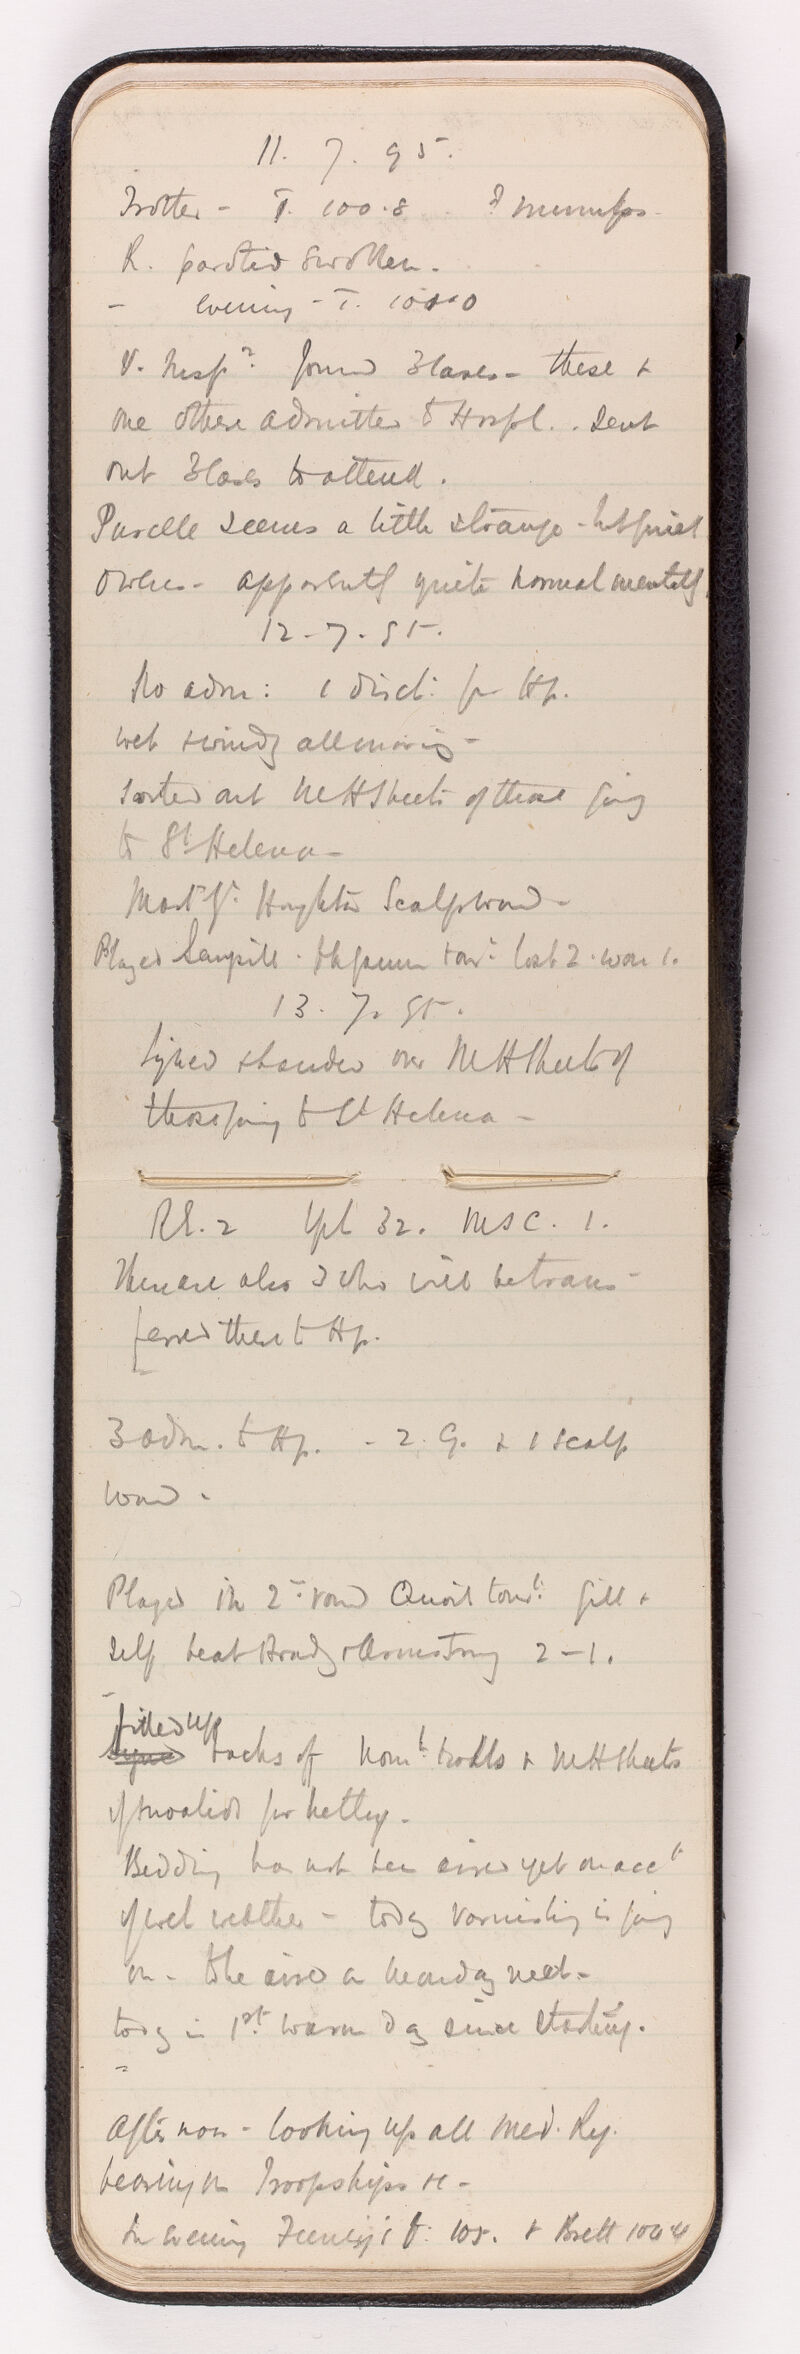 11. 7. 95.
Trotter - T. 100.8 ? mumps.
R. parotid swollen.
- evening - T. 100.0
V. Insp.n found 3 cases - these &
one other admitted to Hospl. . Sent
out 3 cases to attend.
Purcelle seems a little strange - but quiet
apparently quite normal mentally.
12 - 7. 95.
No adm: 1 disch: fr Hp.
wet & windy all morning -
Sorted out MH Sheets of those going
to St Helena -
Houghton Scalp wound -
Played Sempill. tour.t lost 2. won 1.
13. 7. 95.
Signed & handed over MH Sheets of
those going to St Helena -
R.E. 2 32. MSC. 1.
There are also 3 who will be trans-
ferred there to Hp.
3 adm. to Hp. - 2. G. & 1 scalp
wound -
Played in 2nd round Quoit tour.t: Gill &
Self beat Brady & Armstrong 2 - 1.
filled up
backs of Nom.l & MH Sheets
of invalids for Netley -
Bedding has not been aired yet on acct
of wet weather - today varnishing is going
on - to be aired on Monday next -
today is 1st warm day since starting.
Afternoon - looking up all Med. Reg.
bearing on Troopships &c -
In evening t. 105. & Brett 104.4